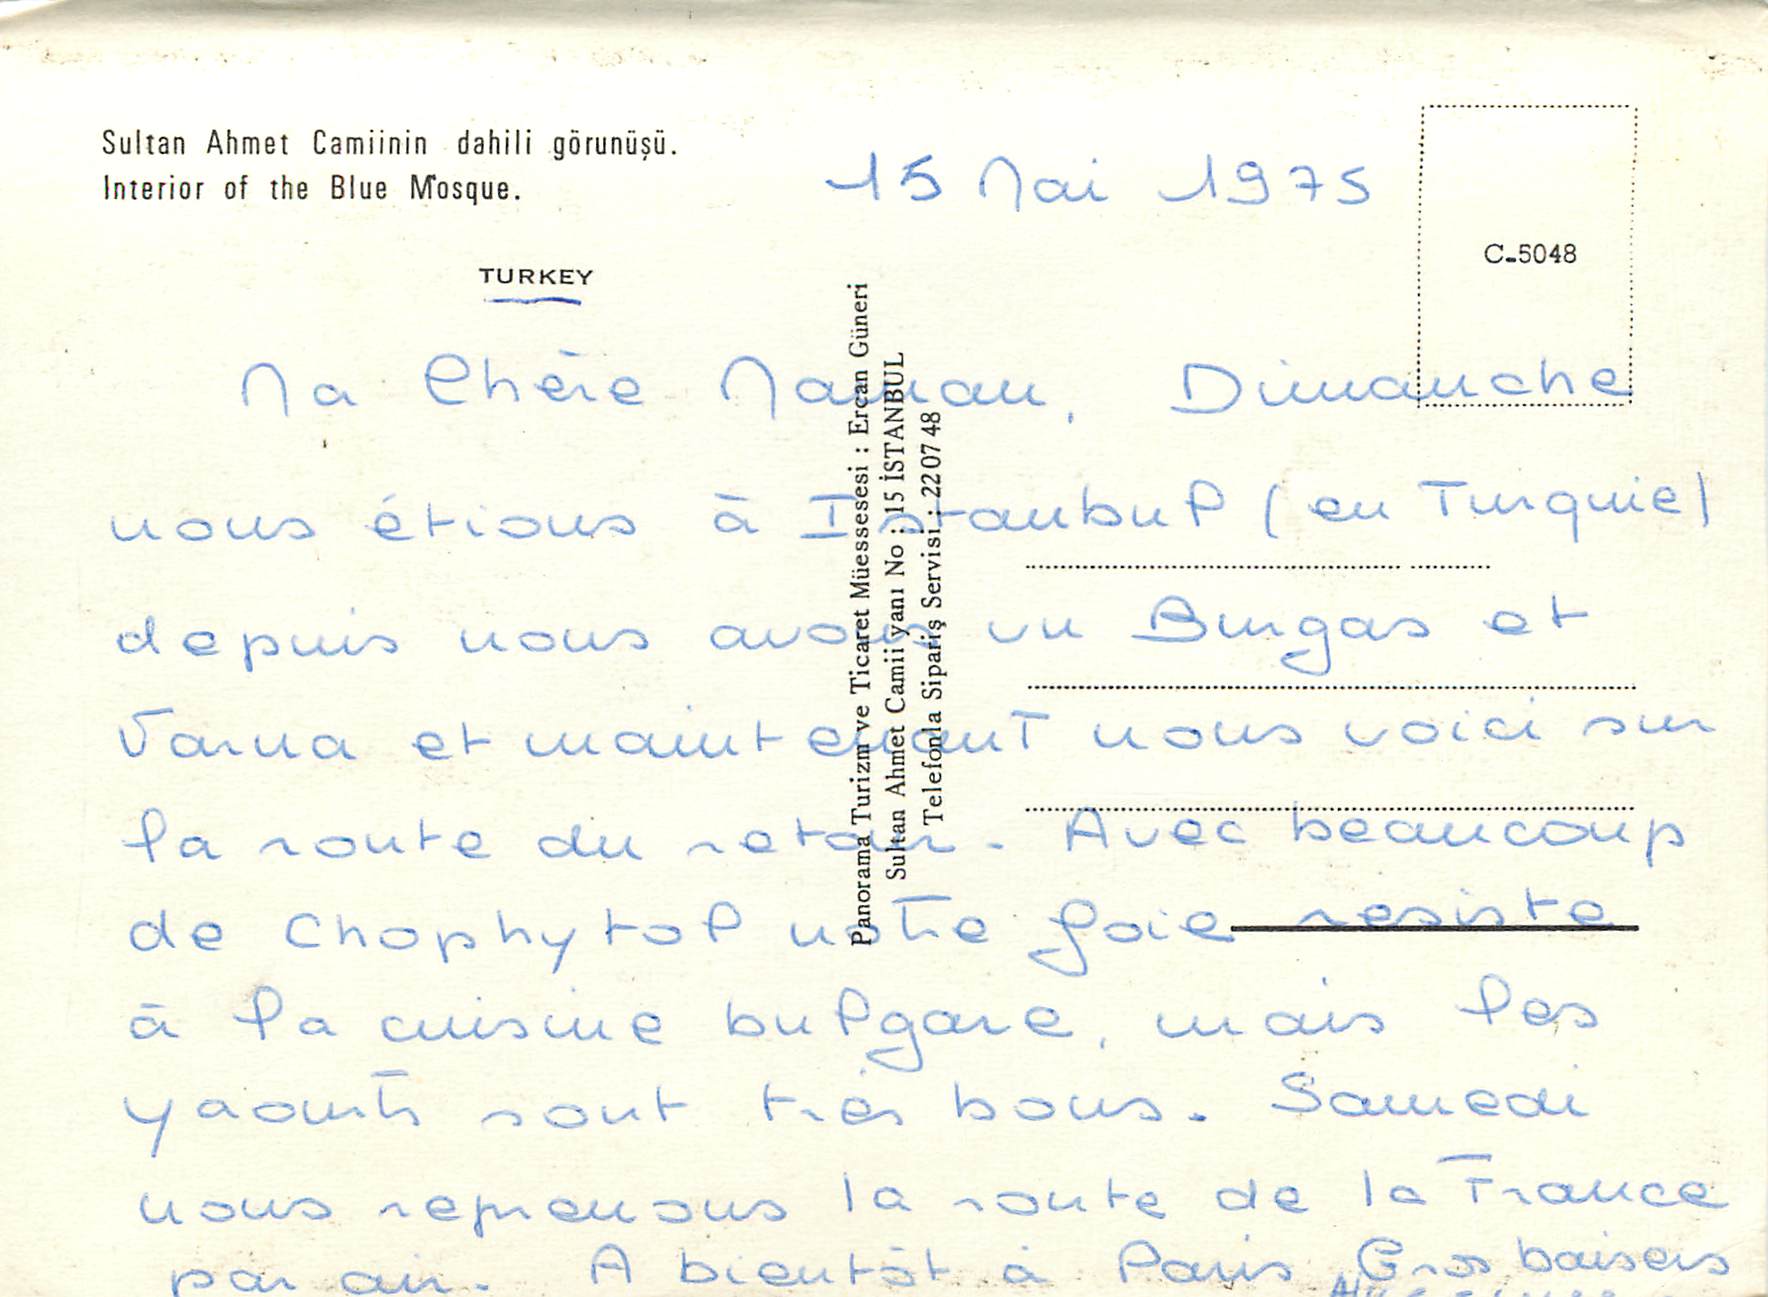 Sultan Ahmet Camiinin dahili görunüşü.
Interior of the Blue Mosque.
TURKEY
15 Mai 1975
C-5048
Panorama Turizm ve Ticaret Müessesesi : Ercan Güneri
Sultan Ahmet Camii yanı No : 15 İSTANBUL
Telefonla Sipariş Servisi : 22 07 48
Ma Chère Maman, Dimanche
nous étions à Istanbul (en Turquie)
depuis nous avons vu Burgas et
Varna et maintenant nous voici sur
la route du retour. Avec beaucoup
de Chophytol notre foie resiste
à la cuisine bulgare, mais les
yaourts sont très bons. Samedi
nous reprenons la route de la France
par air. A bientôt à Paris Gros baisers